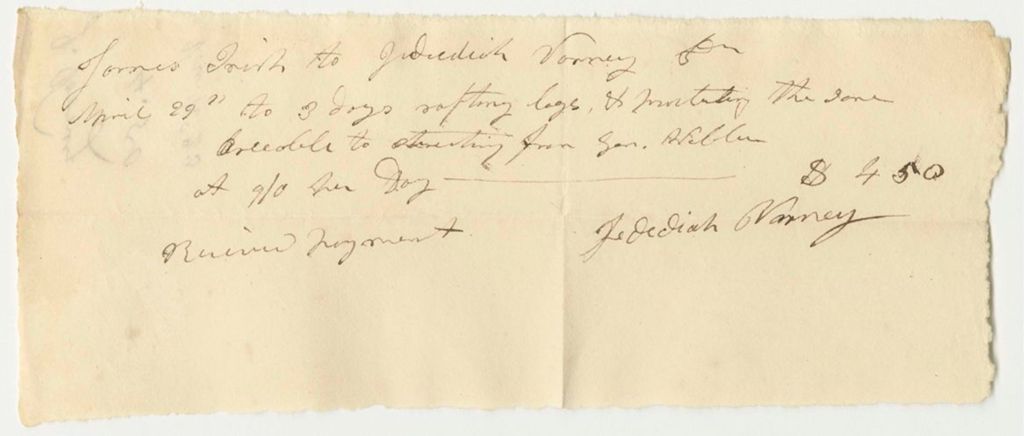 James Irish to Jedediah Varney Dr
April 29th to 3 days rafting logs, & the same
agreeable to from Gen. Webber
at 9/0 per Day $ 4 50
Received payment Jedediah Varney